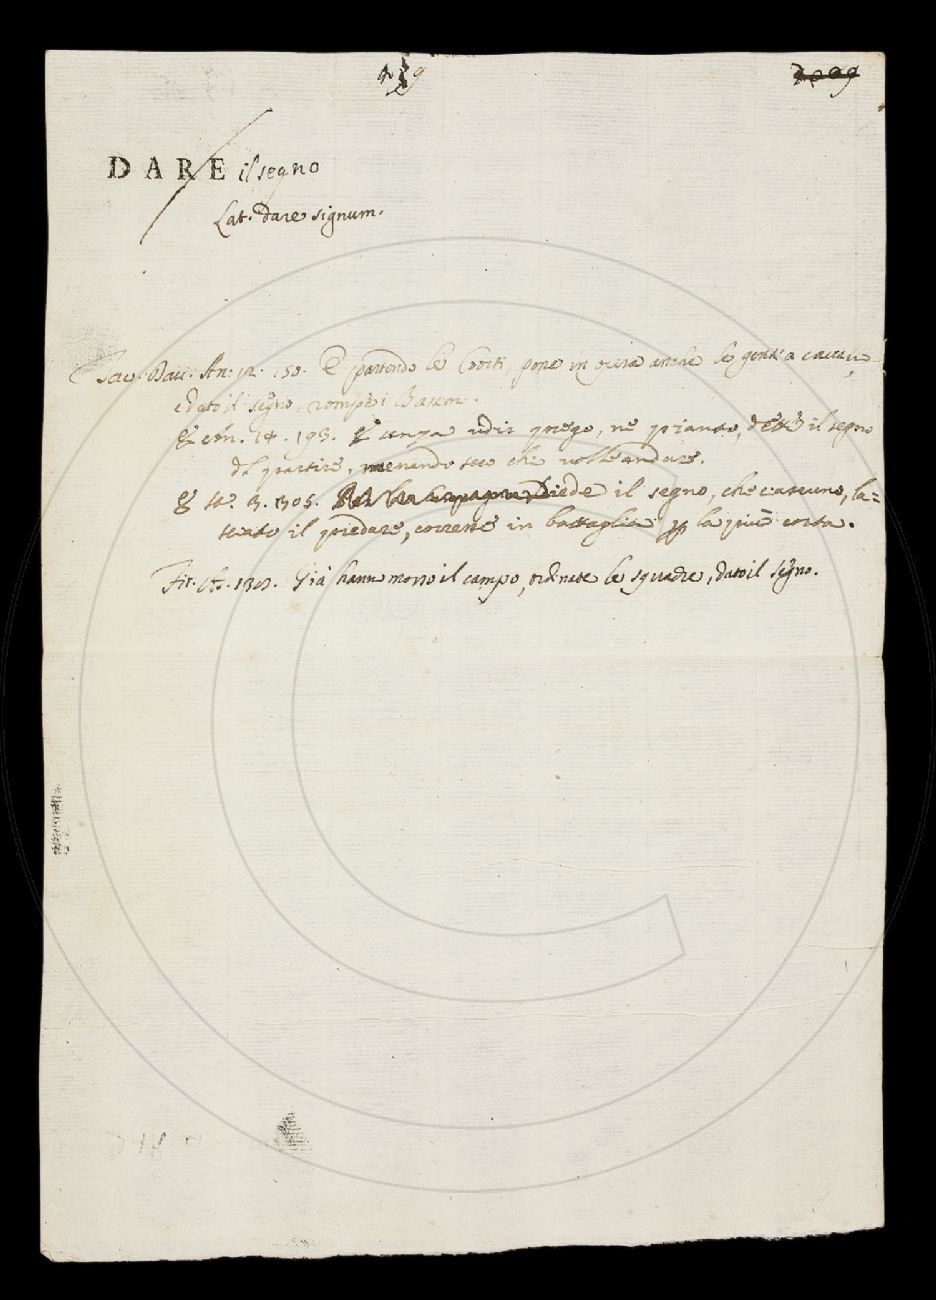 DARE il segno
Lat. dare signum.
Tac. Dav. An. 12. 150. E partendo le Coorti, pone in opera anche le genti a cavallo,
e dato il segno, rompe i
E An. 14. 193. E senza udir prego, nè pianto, dette il segno
di partire, menando seco chi volle andare.
E St. 3. 305. Diede il segno, che ciascuno, la=
sciato il predare, corresse in battaglia per la più corta.
Già hann mosso il campo, ordinate le squadre, dato il segno.